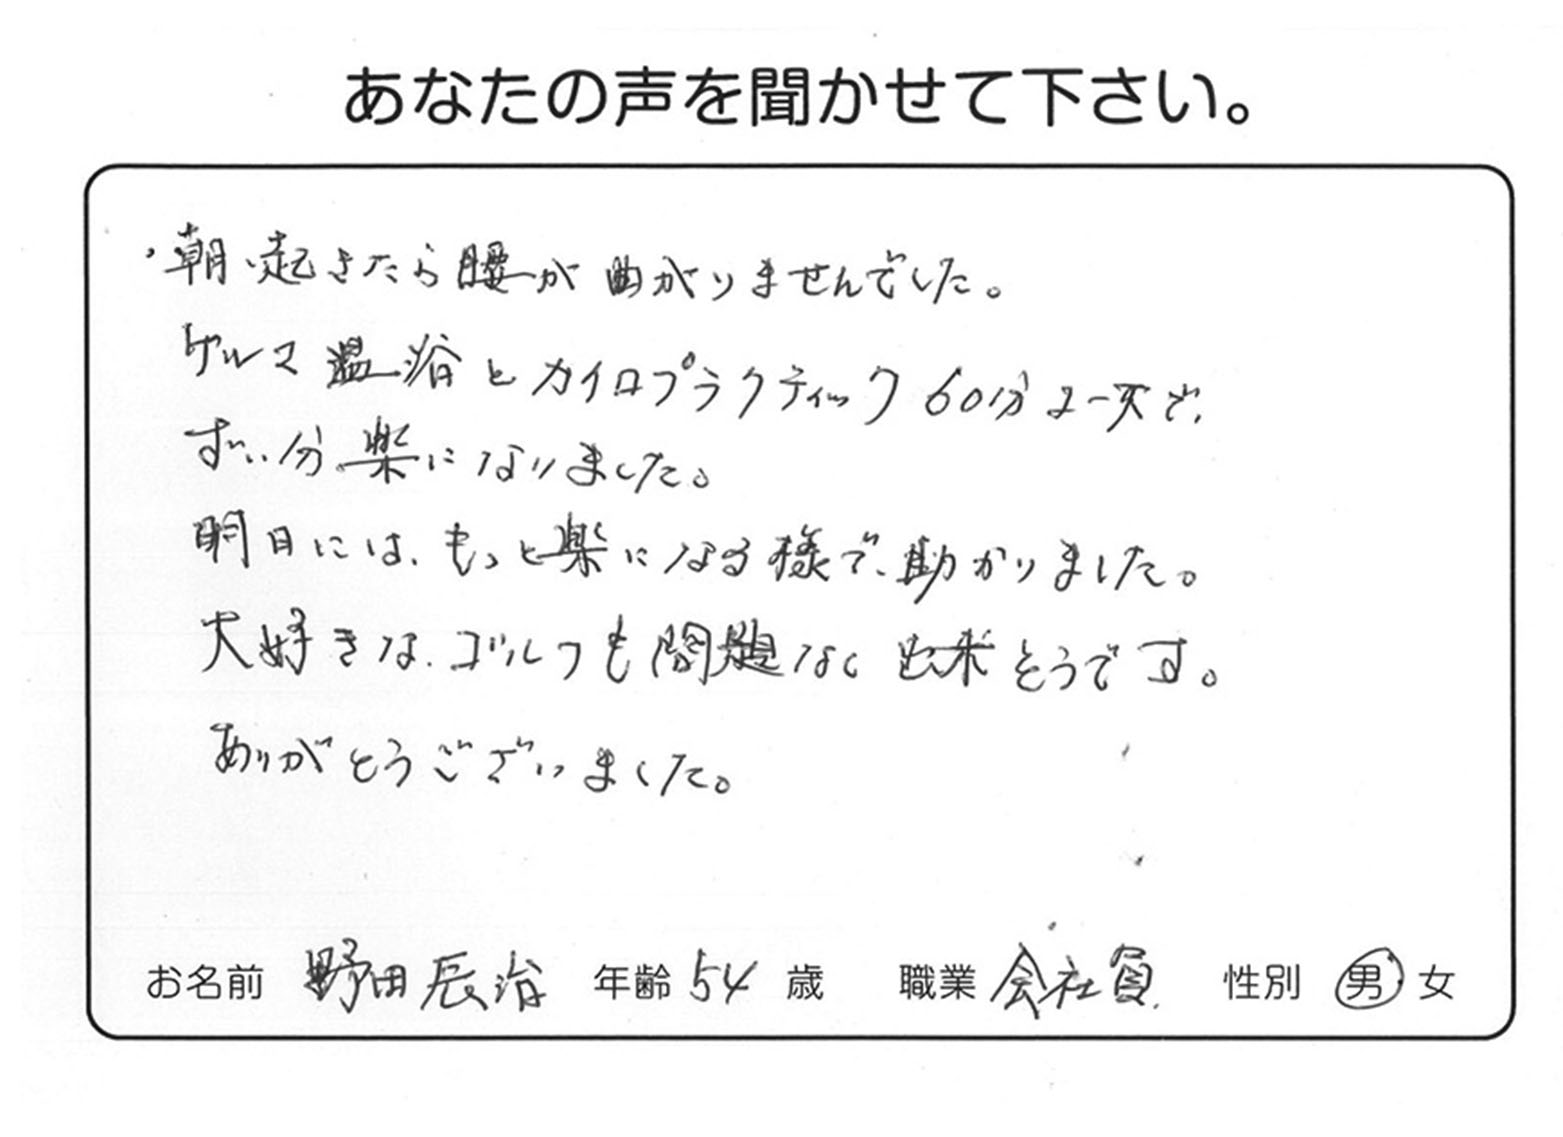 あなたの声を聞かせて下さい。
・朝、起きたら腰が曲がりませんでした。
ゲルマ温浴とカイロプラクティック60分コースで、
ずい分楽になりました。
明日には、もっと楽になる様で、助かりました。
大好きな、ゴルフも問題なく出来そうです。
ありがとうございました。
お名前 野田辰治 年齢 54 歳 職業 会社員 性別 男 女